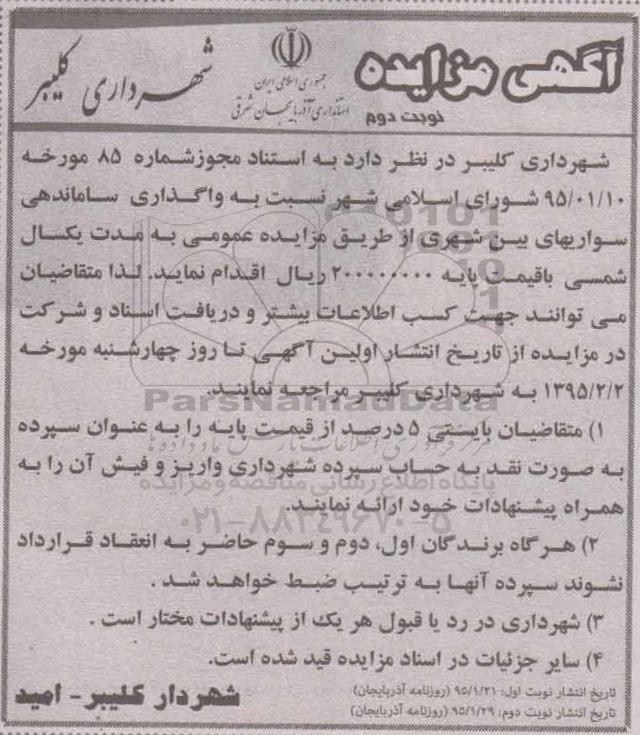 آگهی مزایده
نوبت دوم
جمهوری اسلامی ایران
استانداری آذربایجان شرقی
شهرداری کلیبر
شهرداری کلیبر در نظر دارد به استناد مجوزشماره ۸۵ مورخه
۹۵/۰۱/۱۰ شورای اسلامی شهر نسبت به واگذاری ساماندهی
سواریهای بین شهری از طریق مزایده عمومی به مدت یکسال
شمسی باقیمت پایه ۲۰۰۰۰۰۰۰۰ ریال اقدام نماید. لذا متقاضیان
می توانند جهت کسب اطلاعات بیشتر و دریافت اسناد و شرکت
در مزایده از تاریخ انتشار اولین آگهی تا روز چهارشنبه مورخه
۱۳۹۵/۲/۲ به شهرداری کلیبر مراجعه نمایند.
ParsNamadData
۱) متقاضیان بایستی ۵ درصد از قیمت پایه را به عنوان سپرده
به صورت نقد به حساب سپرده شهرداری واریز و فیش آن را به
پایگاه اطلاع رسانی مناقصه و مزایده
همراه پیشنهادات خود ارائه نمایند.
۰۲۱-۸۸۳۴۹۶۷۰-۵
۲) هرگاه برندگان اول، دوم و سوم حاضر به انعقاد قرارداد
نشوند سپرده آنها به ترتیب ضبط خواهد شد .
۳) شهرداری در رد یا قبول هر یک از پیشنهادات مختار است .
۴) سایر جزئیات در اسناد مزایده قید شده است.
تاریخ انتشار نوبت اول: ۹۵/۱/۲۱ (روزنامه آذربایجان)
تاریخ انتشار نوبت دوم: ۹۵/۱/۲۹ (روزنامه آذربایجان)
شهردار کلیبر- امید